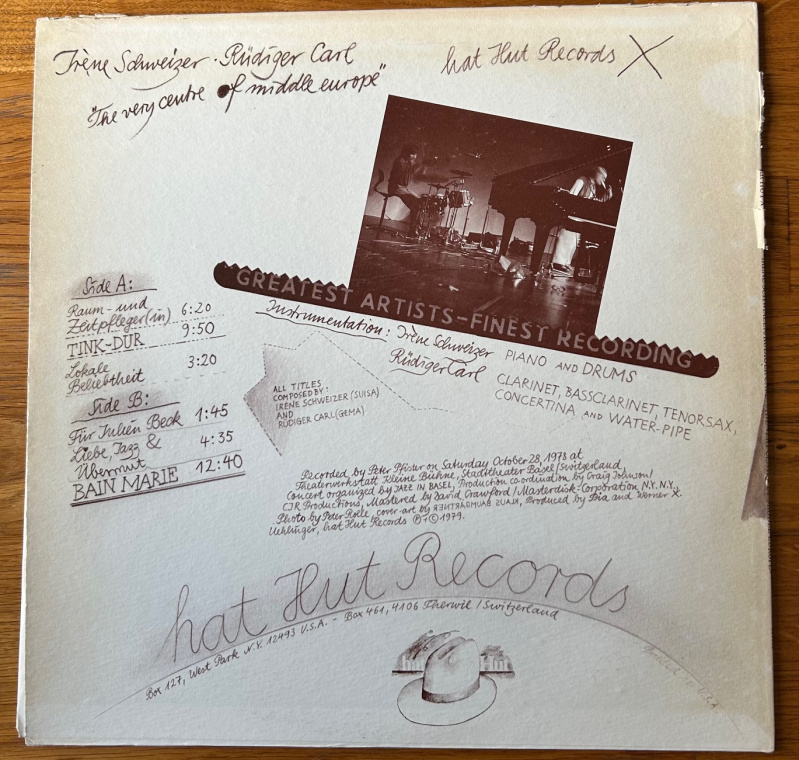 Irène Schweizer · Rüdiger Carl
"The very centre of middle europe"
hat Hut Records X
GREATEST ARTISTS – FINEST RECORDING
Side A:
Raum- und
Zeitpfleger(in) 6:20
TINK-DUR 9:50
Lokale
Beliebtheit 3:20
Side B:
Für Julien Beck 1:45
Liebe, Jazz &
Übermut 4:35
BAIN MARIE 12:40
Instrumentation: Irène Schweizer PIANO AND DRUMS
Rüdiger Carl CLARINET, BASSCLARINET, TENORSAX,
CONCERTINA AND WATER-PIPE
ALL TITLES
COMPOSED BY:
IRÈNE SCHWEIZER (SUISA)
AND
RÜDIGER CARL (GEMA)
Recorded by Peter Pfister on Saturday October 28, 1978 at
Theaterwerkstatt Kleine Bühne, Stadttheater Basel/Switzerland,
Concert organized by JAZZ IN BASEL, Production co-ordination by Craig Johnson/
CJR Productions, Mastered by David Crawford/Masterdisk-Corporation, N.Y. N.Y.,
Photo by Peter Rolle, cover-art by KLAUS BAUMGÄRTNER, Produced by Pia and Werner X.
Uehlinger, hat Hut Records ℗+© 1979.
hat Hut Records
Box 127, West Park N.Y. 12493 U.S.A. – Box 461, 4106 Therwil / Switzerland
Printed in USA